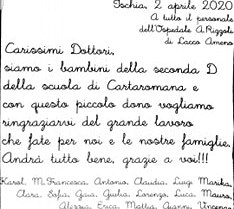 Ischia, 2 aprile 2020
A tutto il personale
dell'Ospedale A. Rizzoli
di Lacco Ameno
Carissimi Dottori,
siamo i bambini della seconda D
della scuola di Cartaromana e
con questo piccolo dono vogliamo
ringraziarvi del grande lavoro
che fate per noi e le nostre famiglie.
Andrà tutto bene, grazie a voi!!!
Karol, M. Francesca, Antonio, Claudia, Luigi, Marika,
Clara, Sofia, Gaia, Giulia, Lorenzo, Luca, Mauro,
Alessia, Erica, Mattia, Gianni, Vincenzo